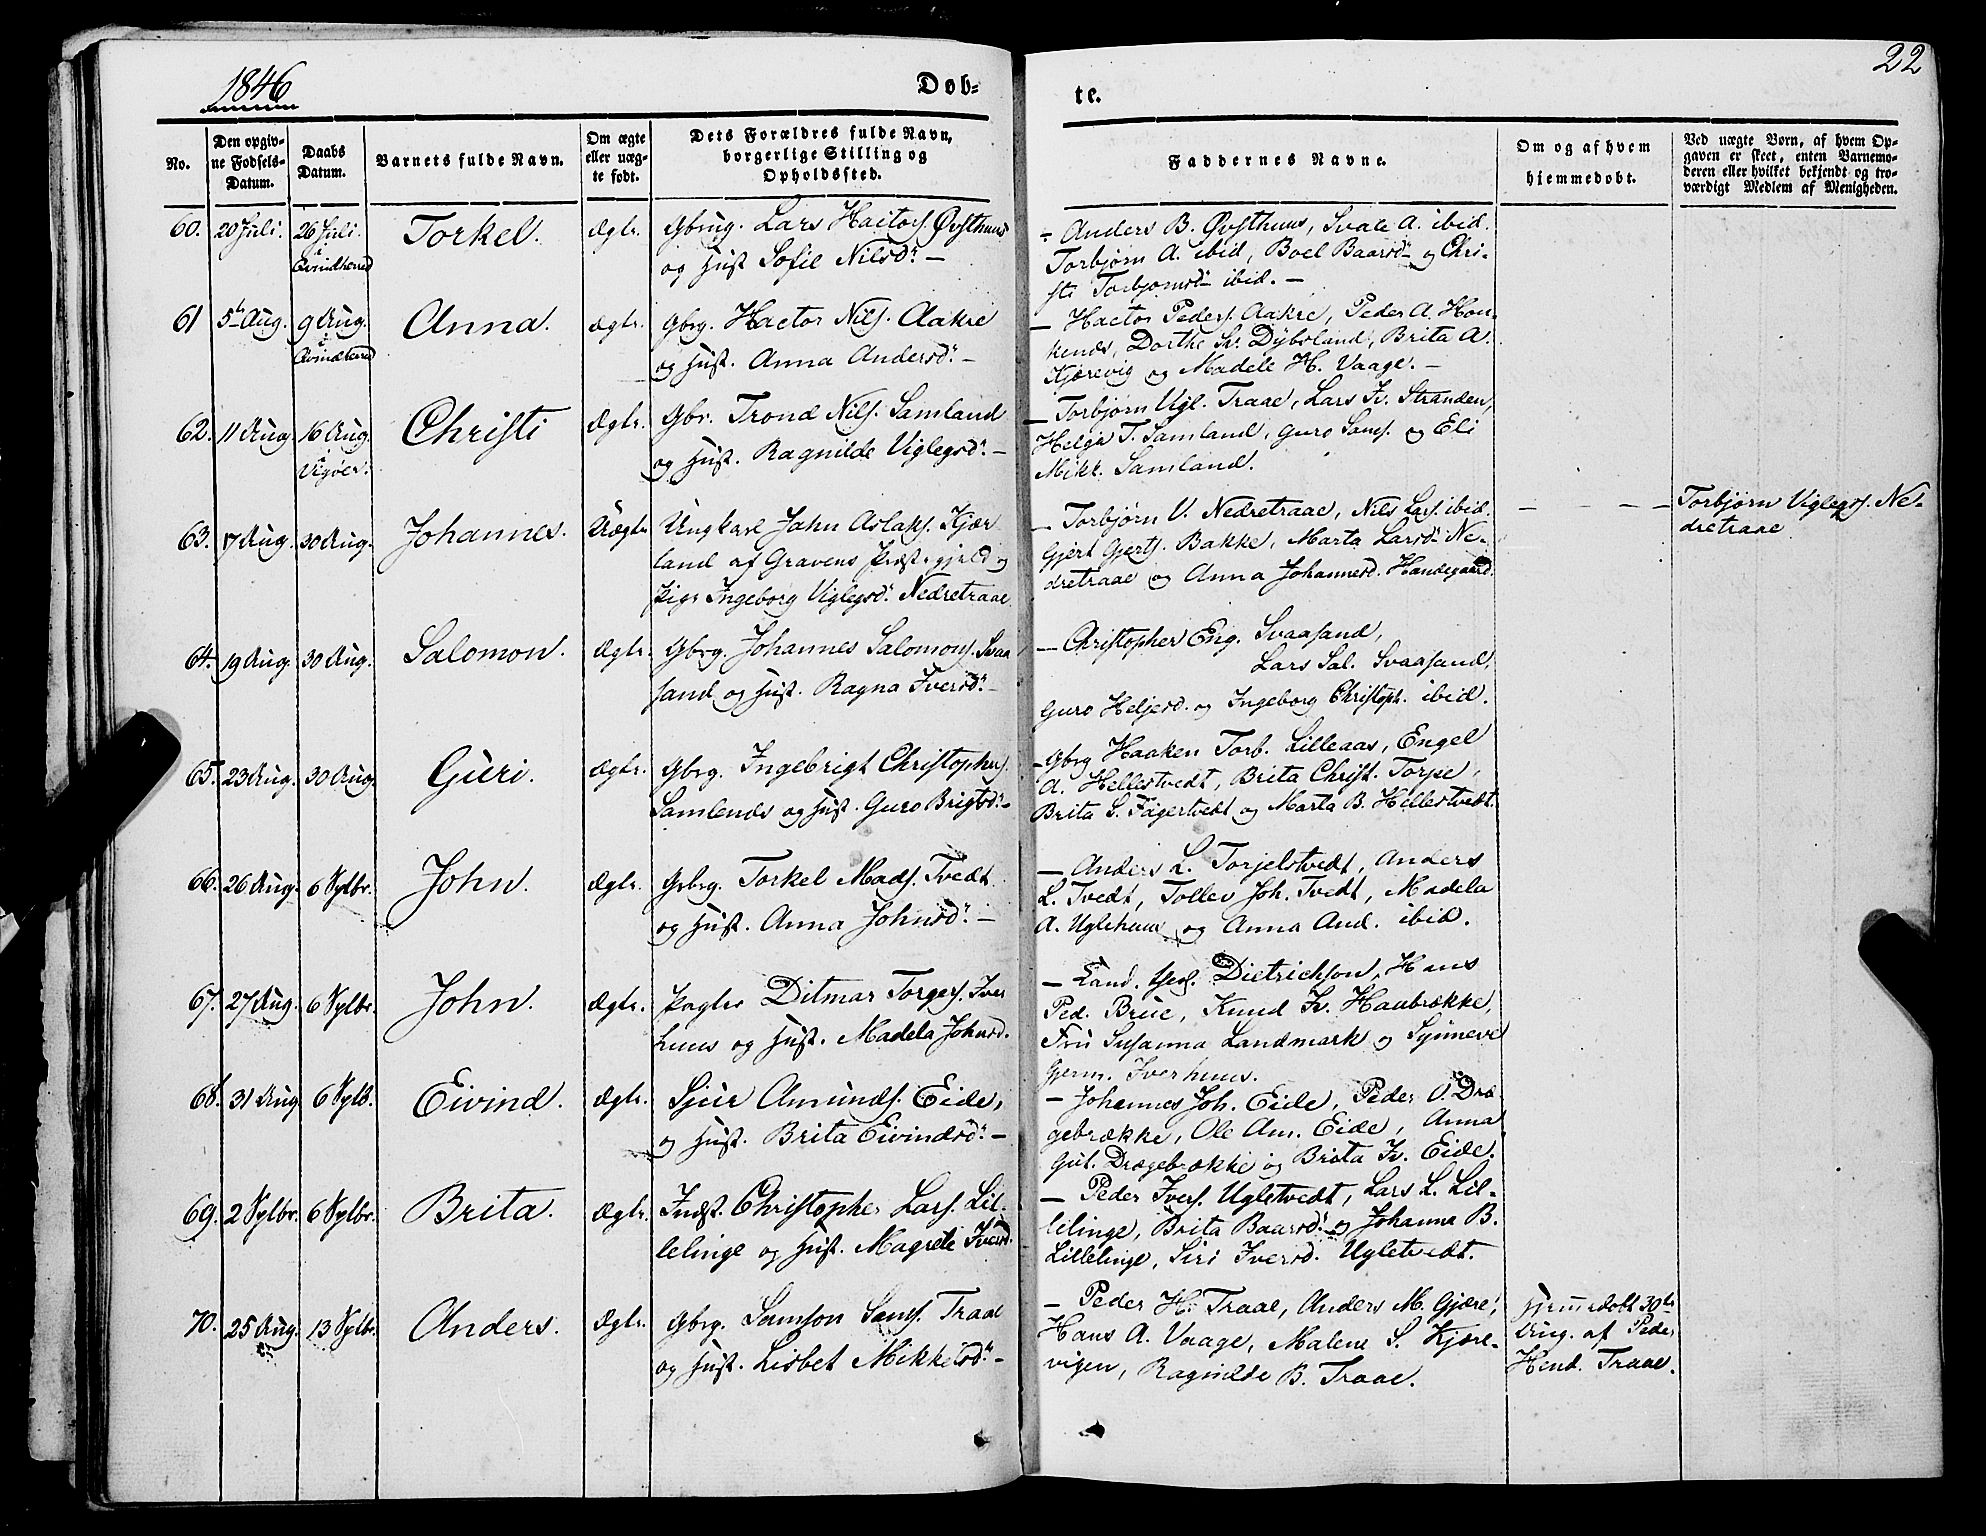 1846
Døb-
te.
22
No.
Den opgiv-
ne Fødsels-
Datum.
Daabs
Datum.
Barnets fulde Navn.
Om ægte
eller uæg-
te født.
Dets Forældres fulde Navn,
borgerlige Stilling og
Opholdssted.
Faddernes Navne.
Om og af hvem
hjemmedøbt.
Ved uægte Børn, af hvem Op-
gaven er skeet, enten Barnemo-
deren eller hvilket bekjendt og tro-
værdigt Medlem af Menigheden.
60. 20 Juli. 26 Juli. Torkel. Ægte. Gbrug. Lars Hactors. Øvsthuus
i Qvindherred og Hust. Sofie Nilsd. –
– Anders B. Øvsthuus, Svale A. ibid.
Torbjørn A. ibid, Boel Baarsd. og Chri-
sti Torbjørnsd. ibid. –
61 5te Aug. 9 Aug. Anna. Ægte. Gbrg. Hactor Nils. Aakre
i Qvindherred og Hust. Anna Andersd. –
– Hactor Peders. Aakre, Peder A. Hon-
kends, Dorthe Sr. Dybsland, Brita A.
Kjærevig og Madele H. Vaage. –
62. 11 Aug 16 Aug. Christi Ægte. Gbr. Trond Nils. Samland
i Vigøer. og Hust. Ragnilde Viglegsd. –
– Torbjørn Vigl. Traae, Lars Iv. Stranden,
Helge T. Samland, Guro Sams. og Eli
Mikk. Samland.
63. 17 Aug. 30 Aug. Johannes. Uægte Ungkarl John Aslaks. Kjær
land af Gravens Præstegjeld og
Pige Ingeborg Viglegsd. Nedretraae
– Torbjørn V. Nedretraae, Nils Lars. ibid.
Gjert Gjerts. Bakke, Marta Larsd. Ne-
dretraae og Anna Johannesd. Handegaard.
– – – – Torbjørn Viglegs. Ne-
dretraae
64. 19 Aug. 30 Aug. Salomon. Ægte. Gbrg. Johannes Salomons. Svaa
sand og Hust. Ragna Iversd. –
– Christopher Eng. Svaasand,
Lars Sal. Svaasand,
Guro Heljesd. og Ingeborg Christoph. ibid.
65. 23 Aug. 30 Aug Guri. Ægte. Gbrg. Ingebrigt Christophers.
Samlends og Hust. Guro Brigtsd. –
– Gbrg Haaken Torb. Lilleaas, Engel
A. Hellestvedt, Brita Christ. Torpe,
Brita S. Fagertvedt og Marta B. Hellestvedt.
66. 26 Aug. 6 Sptbr. John. Ægte. Gbrg. Torkel Mads. Tvedt
og Hust. Anna Johnsd. –
– Anders L. Torjelstvedt, Anders
L. Tvedt, Tollev Joh. Tvedt, Madela
A. Uglehuus og Anna And. ibid.
67. 27 Aug. 6 Sptbr. John. Ægte. Pagter Ditmar Torgers. Iver
huus og Hust. Madela Johnsd.
– Land. Dietrichson, Hans
Ped. Brue, Knud Iv. Haabrække,
Fru Susanna Landmark og Synneve
Gjerm. Iverhuus.
68. 31 Aug 6 Sptb. Eivind. Ægte. Sjur Amunds. Eide,
og Hust. Brita Eivindsd. –
– Johannes Joh. Eide, Peder O. Dræ
gebrække, Ole Am. Eide, Anna
Gul. Drægebrække og Brita Iv. Eide.
69. 2 Sptbr. 6 Sptbr. Brita. Ægte. Indst. Christopher Lars. Lil-
lelinge og Hust. Magrete Iversd.
– Peder Ivers. Ugletvedt, Lars L. Lil-
lelinge, Brita Baarsd. og Johanna B.
Lillelinge, Siri Iversd. Ugletvedt.
70. 25 Aug. 13 Sptbr. Anders. Ægte. Gbrg. Samson Sams. Traae
og Hust. Lisbet Mikkelsd. –
– Peder H. Traae, Anders M. Gjære,
Hans A. Vaage, Malene S. Kjære-
vigen, Ragnilde B. Traae.
Hjemmedøbt 30te
Aug. af Peder
Hend. Traae.